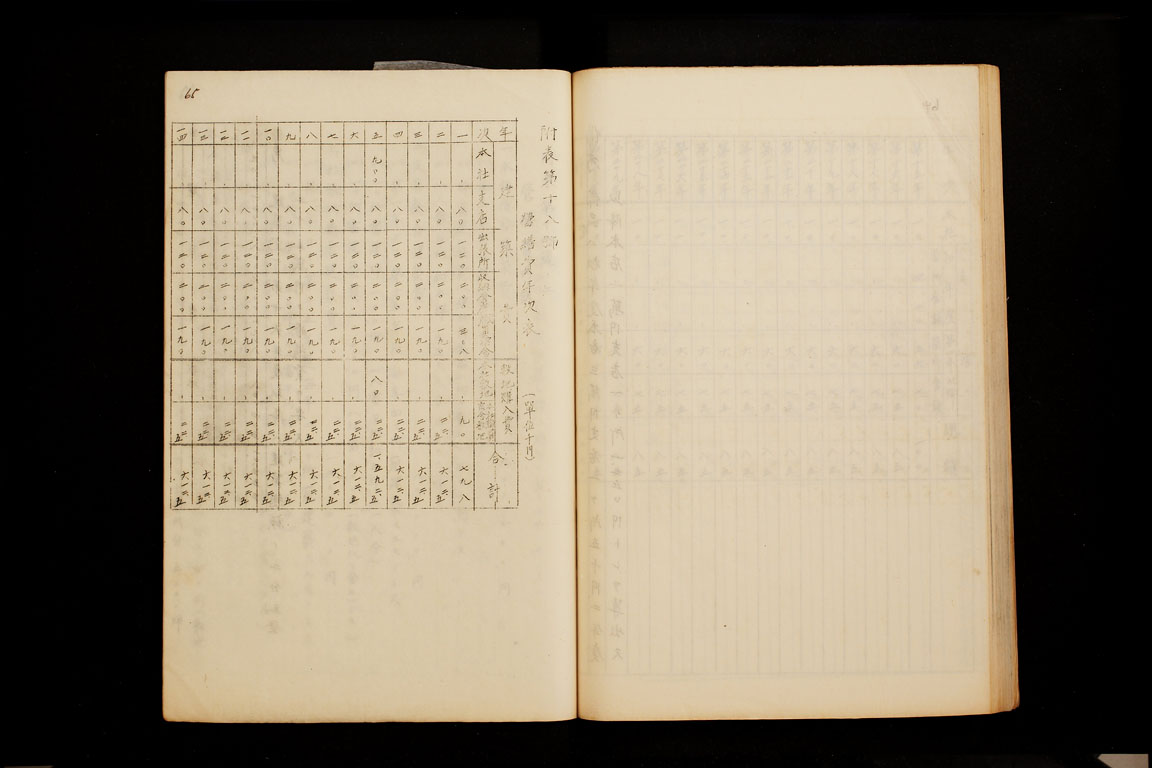 65
附表第十八號
營繕費年次表
(單位千円)
年次 建築費 敷地購入費 合計
本社 支店 出張所
一 、 八〇 一二〇 二〇〇 三〇八 、 九〇 七九八
二 、 八〇 一二〇 二〇〇 一九〇 、 二二.五 六一二.五
三 、 八〇 一二〇 二〇〇 一九〇 、 二二.五 六一二.五
四 、 八〇 一二〇 二〇〇 一九〇 、 二二.五 六一二.五
五 九〇〇 八〇 一二〇 二〇〇 一九〇 八〇 二二.五 一、五九二.五
六 、 八〇 一二〇 二〇〇 一九〇 、 二二.五 六一二.五
七 、 八〇 一二〇 二〇〇 一九〇 、 二二.五 六一二.五
八 、 八〇 一二〇 二〇〇 一九〇 、 二二.五 六一二.五
九 、 八〇 一二〇 二〇〇 一九〇 、 二二.五 六一二.五
一〇 、 八〇 一二〇 二〇〇 一九〇 、 二二.五 六一二.五
一一 、 八〇 一二〇 二〇〇 一九〇 、 二二.五 六一二.五
一二 、 八〇 一二〇 二〇〇 一九〇 、 二二.五 六一二.五
一三 、 八〇 一二〇 二〇〇 一九〇 、 二二.五 六一二.五
一四 、 八〇 一二〇 二〇〇 一九〇 、 二二.五 六一二.五